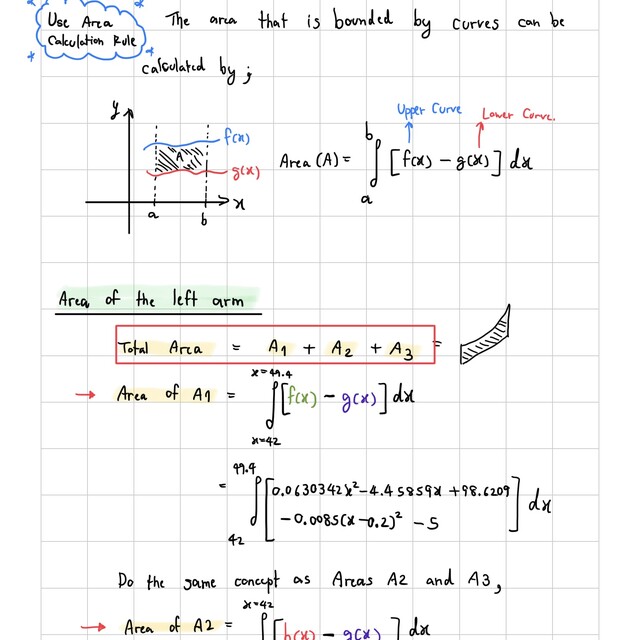 Use Area
Calculation Rule
The area that is bounded by curves can be
calculated by;
y
f(x)
A
g(x)
x
a
b
Upper Curve
Lower Curve.
Area (A) = ∫ₐᵇ [f(x) - g(x)] dx
Area of the left arm
Total Area = A1 + A2 + A3 =
→ Area of A1 = ∫ [f(x) - g(x)] dx
x=49.4
x=42
= ∫ [0.0630342x²-4.45859x+98.6209
-0.0085(x-0.2)² -5] dx
49.4
42
Do the game concept as Areas A2 and A3,
x=42
→ Area of A2 = ∫ [h(x) - g(x)] dx